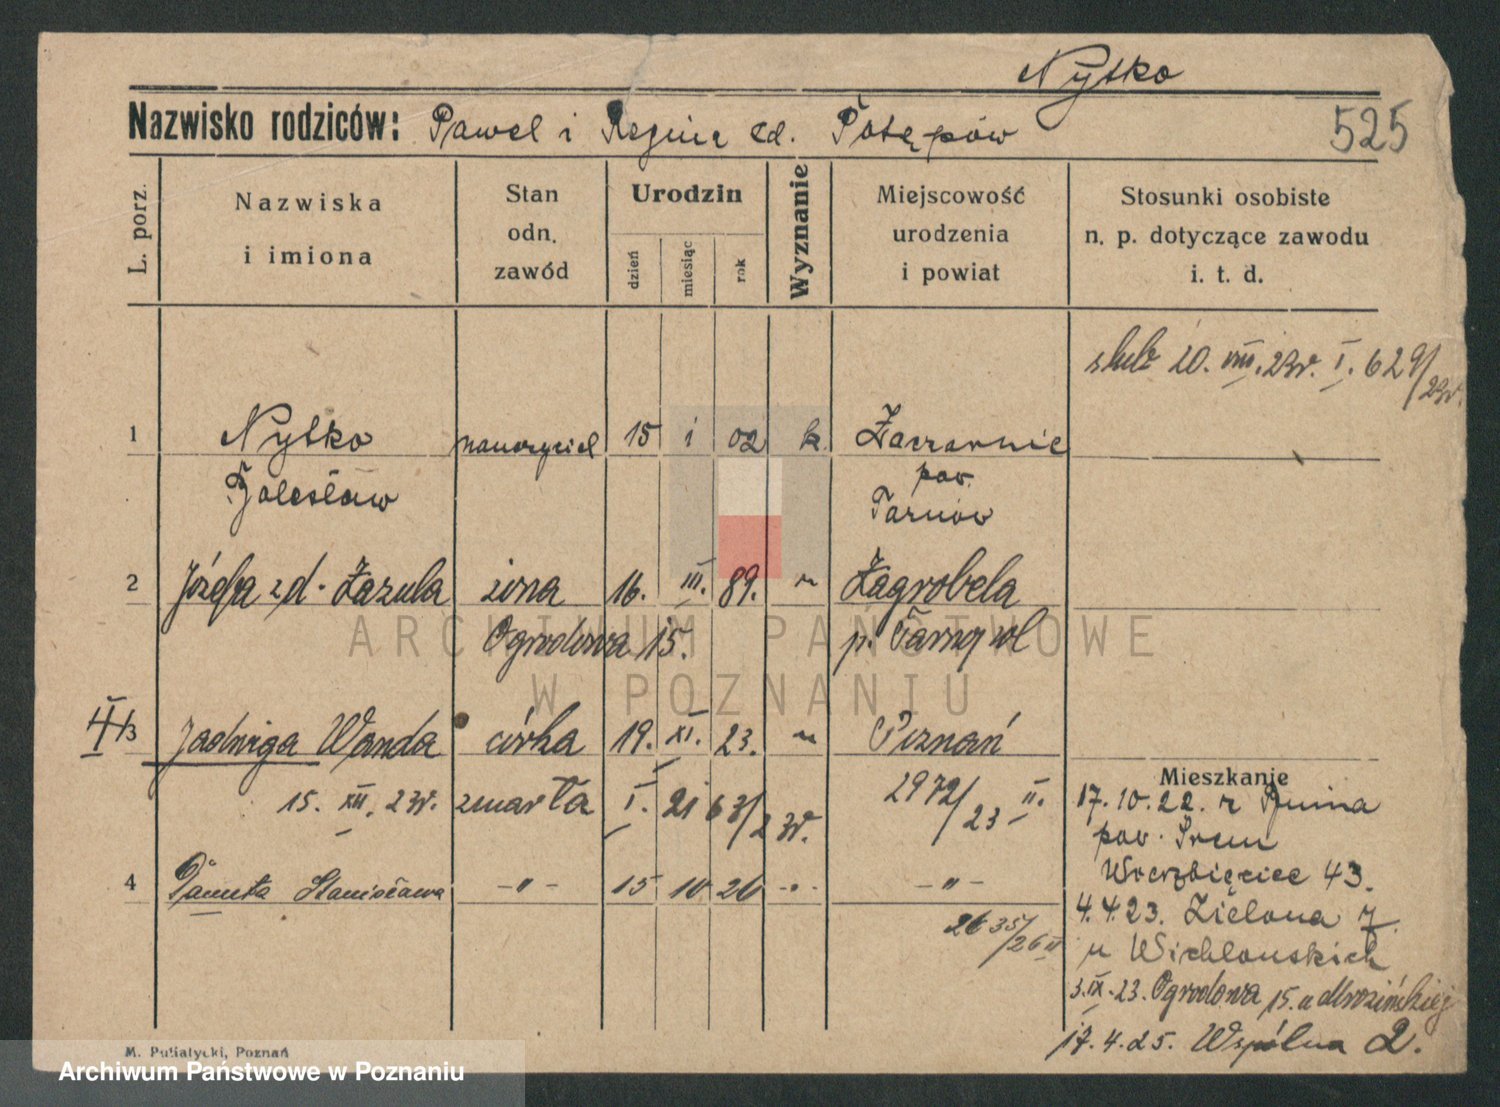 Nytko
Nazwisko rodziców: Paweł i Regina zd. Potępów
525
L. porz.
Nazwiska
i imiona
Stan
odn.
zawód
Urodzin
dzień
miesiąc
rok
Wyznanie
Miejscowość
urodzenia
i powiat
Stosunki osobiste
n. p. dotyczące zawodu
i. t. d.
ślub 20. VIII. 23r. I. 629/23r.
1 Nytko nauczyciel 15 i 02 k. Zaczarnie
Bolesław pow.
Tarnów
2 Józefa zd. Zazula żona 16. III. 89. " Zagrobela
Ogrodowa 15. p. Tarnopol
3 Jadwiga Wanda córka 19. XI. 23. " Poznań
15. XII. 23r. zmarła I. 2972/23 II.
4 Danuta Stanisława -"- 15 10 26 -"- -"-
2635/26 II
Mieszkanie
17.10.22. z
pow. Śrem
Wierzbięcice 43.
4.4.23. Zielona 7
u
3.IX.23. Ogrodowa 15. u Mrozińskiej
17.4.25. Wspólna 2.
M. Putiatycki, Poznań
ARCHIWUM PAŃSTWOWE
W POZNANIU
Archiwum Państwowe w Poznaniu